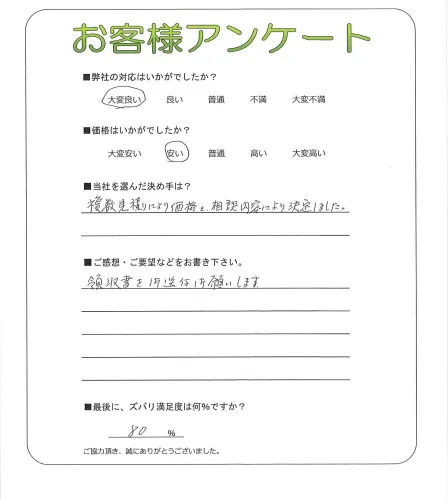 お客様アンケート
■弊社の対応はいかがでしたか?
大変良い 良い 普通 不満 大変不満
■価格はいかがでしたか?
大変安い 安い 普通 高い 大変高い
■当社を選んだ決め手は?
複数見積りにより価格と、相談内容により決定しました。
■ご感想・ご要望などをお書き下さい。
領収書を御送付御願いします
■最後に、ズバリ満足度は何%ですか?
80 %
ご協力頂き、誠にありがとうございました。